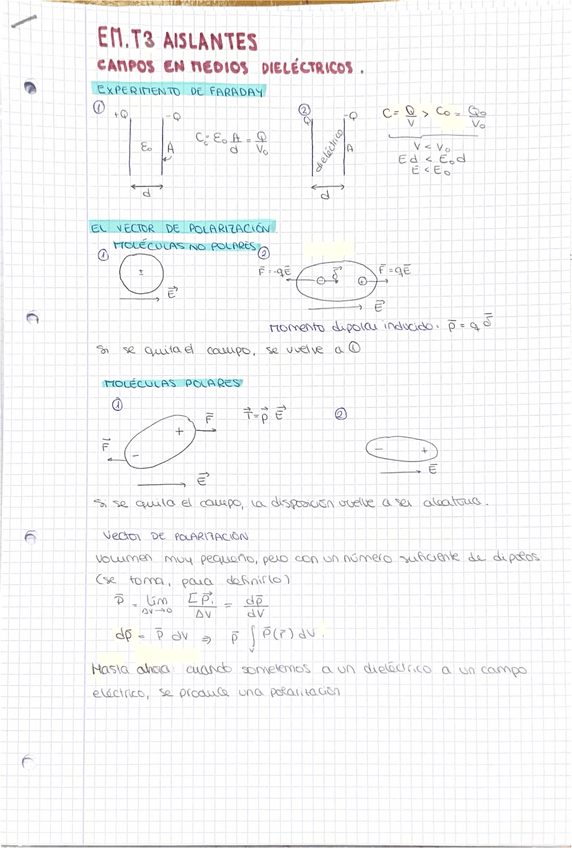 EM.T3 AISLANTES
CAMPOS EN MEDIOS DIELÉCTRICOS.
EXPERIMENTO DE FARADAY
① +Q -Q ε₀ A d
C₀ = ε₀ A/d = Q/V₀
② Q -Q dieléctrico A d
C = Q/V > C₀ = Q₀/V₀
V < V₀
Ed < E₀d
E < E₀
EL VECTOR DE POLARIZACIÓN
MOLÉCULAS NO POLARES
① ± E⃗
② F̄ = -qĒ - δ⃗ + F̄ = qĒ E⃗
Momento dipolar inducido. p̄ = q δ̄
Si se quita el campo, se vuelve a ①
MOLÉCULAS POLARES
① F⃗ - + F⃗ E⃗
T⃗ = p⃗ E⃗
② - + Ē
Si se quita el campo, la disposición vuelve a ser aleatoria.
VECTOR DE POLARIZACIÓN
Volumen muy pequeño, pero con un número suficiente de dipolos
(se toma, para definirlo)
P̄ = lim ΔV→0 Σ P⃗ᵢ / ΔV = dp̄/dV
dp̄ = P̄ dV ⇒ p̄ ∫ᵥ P̄(r̄) dV.
Hasta ahora cuando sometemos a un dieléctrico a un campo
eléctrico, se produce una polarización